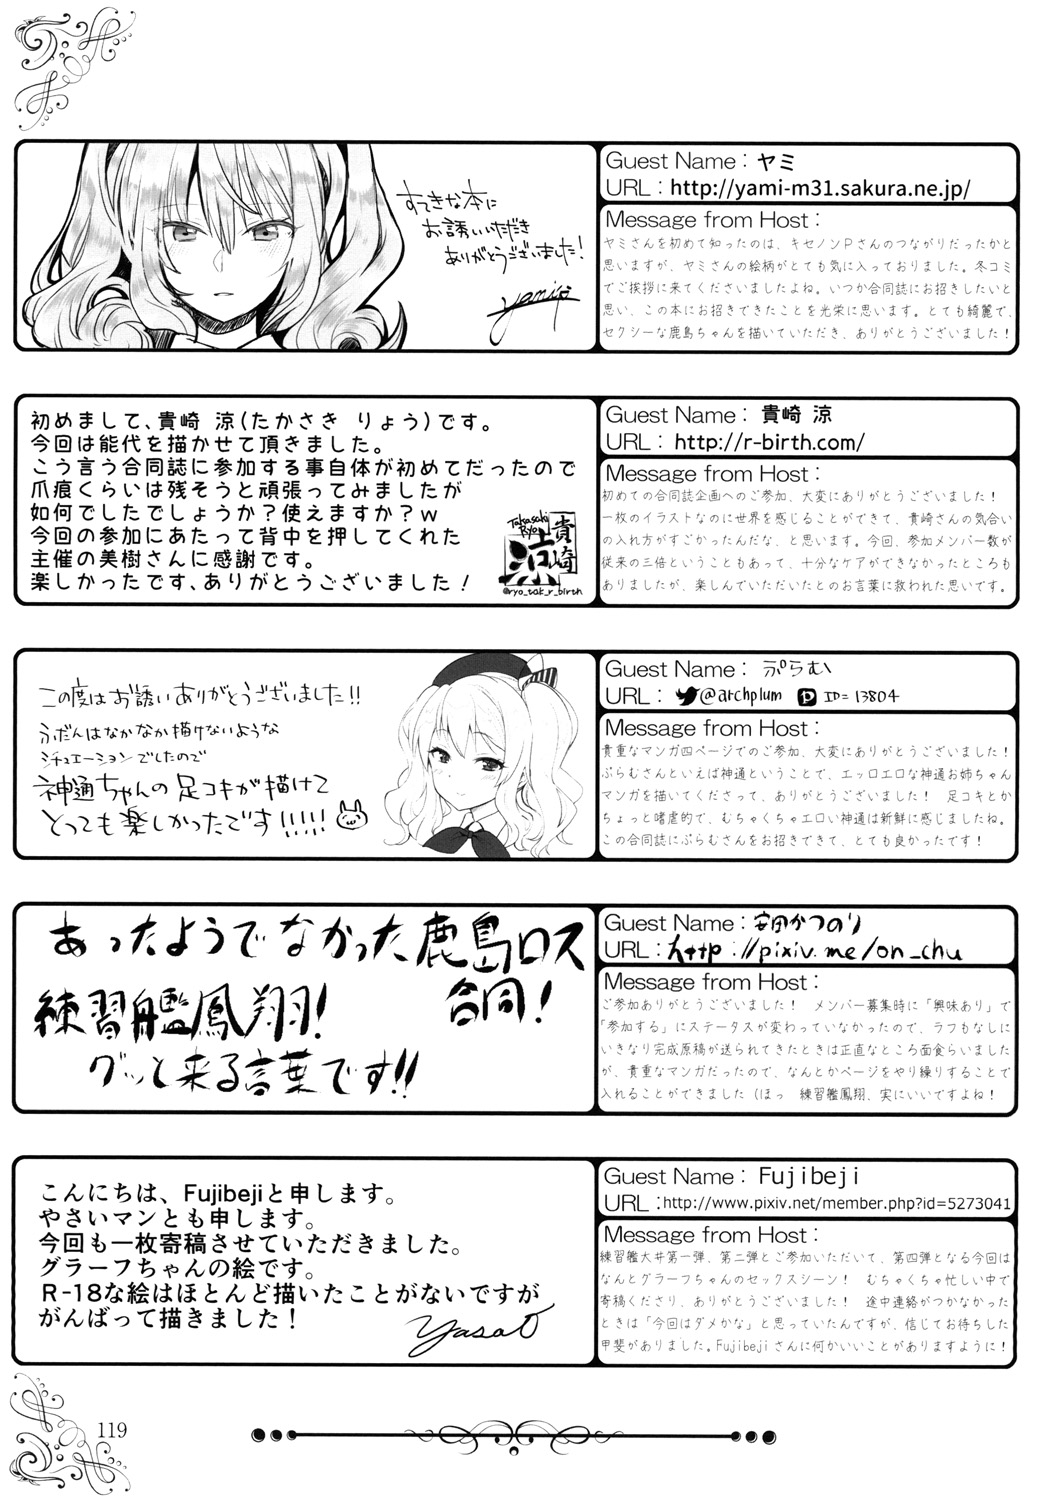 すてきな本に
お誘いいただき
ありがとうございました!
Guest Name : ヤミ
URL : http://yami-m31.sakura.ne.jp/
Message from Host :
ヤミさんを初めて知ったのは、キセノンPさんのつながりだったかと
思いますが、ヤミさんの絵柄がとても気に入っておりました。冬コミ
でご挨拶に来てくださいましたよね。いつか合同誌にお招きしたいと
思い、この本にお招きできたことを光栄に思います。とても綺麗で、
セクシーな鹿島ちゃんを描いていただき、ありがとうございました!
初めまして、貴崎 涼(たかさき りょう)です。
今回は能代を描かせて頂きました。
こう言う合同誌に参加する事自体が初めてだったので
爪痕くらいは残そうと頑張ってみましたが
如何でしたでしょうか?使えますか?w
今回の参加にあたって背中を押してくれた
主催の美樹さんに感謝です。
楽しかったです、ありがとうございました!
Takasaki
Ryo
貴崎
涼
@ryo_tak_r_birth
Guest Name : 貴崎 涼
URL : http://r-birth.com/
Message from Host :
初めての合同誌企画へのご参加、大変にありがとうございました!
一枚のイラストなのに世界を感じることができて、貴崎さんの気合い
の入れ方がすごかったんだな、と思います。今回、参加メンバー数が
従来の三倍ということもあって、十分なケアができなかったところも
ありましたが、楽しんでいただいたとのお言葉に救われた思いです。
この度はお誘いありがとうございました!!
ふだんはなかなか描けないような
シチュエーションでしたので
神通ちゃんの足コキが描けて
とっても楽しかったです!!!!!
Guest Name : ぷらむ
URL : @archplum ID=13804
Message from Host :
貴重なマンガ四ページでのご参加、大変にありがとうございました!
ぷらむさんといえば神通ということで、エッロエロな神通お姉ちゃん
マンガを描いてくださって、ありがとうございました! 足コキとか
ちょっと嗜虐的で、むちゃくちゃエロい神通は新鮮に感じましたね。
この合同誌にぷらむさんをお招きできて、とても良かったです!
あったようでなかった鹿島ロス
合同!
練習艦鳳翔!
グッと来る言葉です!!
Guest Name : 安田かつのり
URL : http://pixiv.me/on_chu
Message from Host :
ご参加ありがとうございました! メンバー募集時に「興味あり」で
「参加する」にステータスが変わっていなかったので、ラフもなしに
いきなり完成原稿が送られてきたときは正直なところ面食らいました
が、貴重なマンガだったので、なんとかページをやり繰りすることで
入れることができました(ほっ 練習艦鳳翔、実にいいですよね!
こんにちは、Fujibejiと申します。
やさいマンとも申します。
今回も一枚寄稿させていただきました。
グラーフちゃんの絵です。
R-18な絵はほとんど描いたことがないですが
がんばって描きました!
Guest Name : Fujibeji
URL : http://www.pixiv.net/member.php?id=5273041
Message from Host :
練習艦大井第一弾、第二弾とご参加いただいて、第四弾となる今回は
なんとグラーフちゃんのセックスシーン! むちゃくちゃ忙しい中で
寄稿くださり、ありがとうございました! 途中連絡がつかなかった
ときは「今回はダメかな」と思っていたんですが、信じてお待ちした
甲斐がありました。Fujibejiさんに何かいいことがありますように!
119